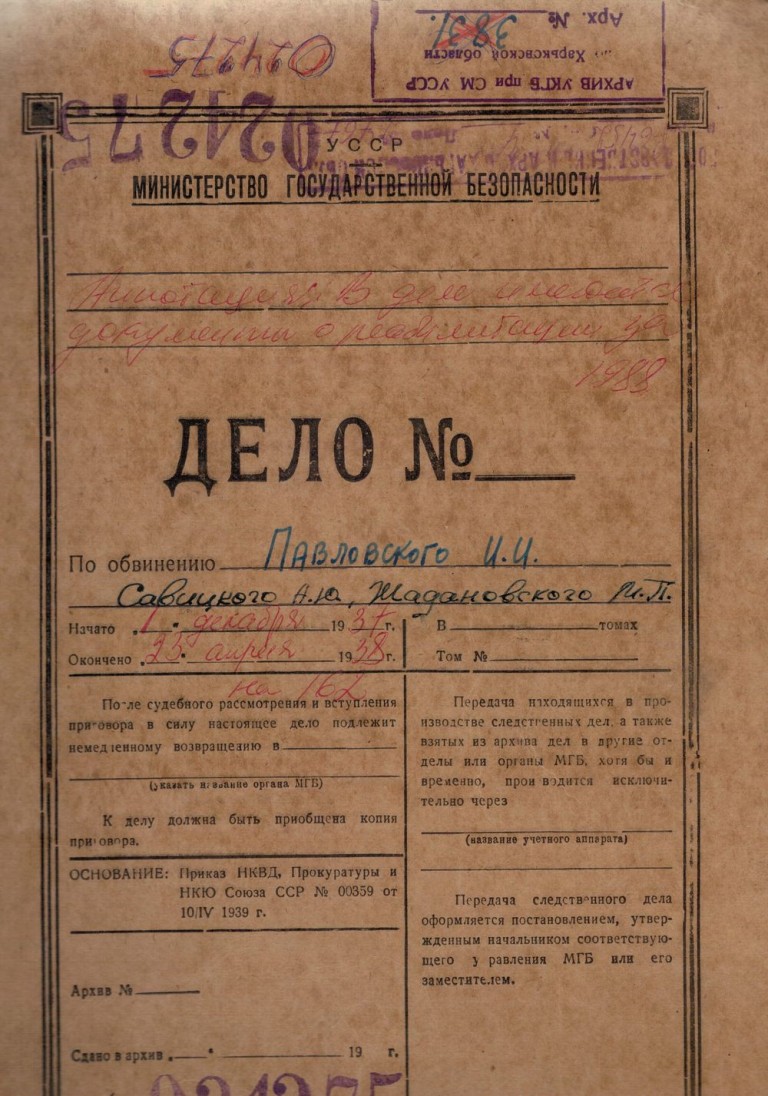 Арх. №
3831.
Харьковской области
АРХИВ УКГБ при СМ УССР
024275
024275
УССР
МИНИСТЕРСТВО ГОСУДАРСТВЕННОЙ БЕЗОПАСНОСТИ
В деле имеются
документы о реабилитации за
1988
ДЕЛО №
По обвинению Павловского И.И.
Савицкого А.Ю., Жадановского М.П.
Начато 1 декабря 1937 г.
Окончено 23 апреля 1938 г.
на 162
В томах
Том №
После судебного рассмотрения и вступления
приговора в силу настоящее дело подлежит
немедленному возвращению в
(указать название органа МГБ)
К делу должна быть приобщена копия
приговора.
ОСНОВАНИЕ: Приказ НКВД, Прокуратуры и
НКЮ Союза ССР № 00359 от
10/IV 1939 г.
Архив №
Сдано в архив 19 г.
Передача находящихся в про-
изводстве следственных дел, а также
взятых из архива дел в другие от-
делы или органы МГБ, хотя бы и
временно, производится исключи-
тельно через
(название учетного аппарата)
Передача следственного дела
оформляется постановлением, утвер-
жденным начальником соответствую-
щего управления МГБ или его
заместителем.
024275